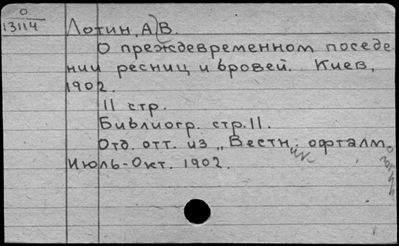 О
13114
Лотин, А.В.
О преждевременном поседе
нии ресниц и бровей. Киев,
1902.
11 стр.
Библиогр. стр. 11.
Отд. отт. из „Вестн. офталм.
Июль-Окт. 1902.